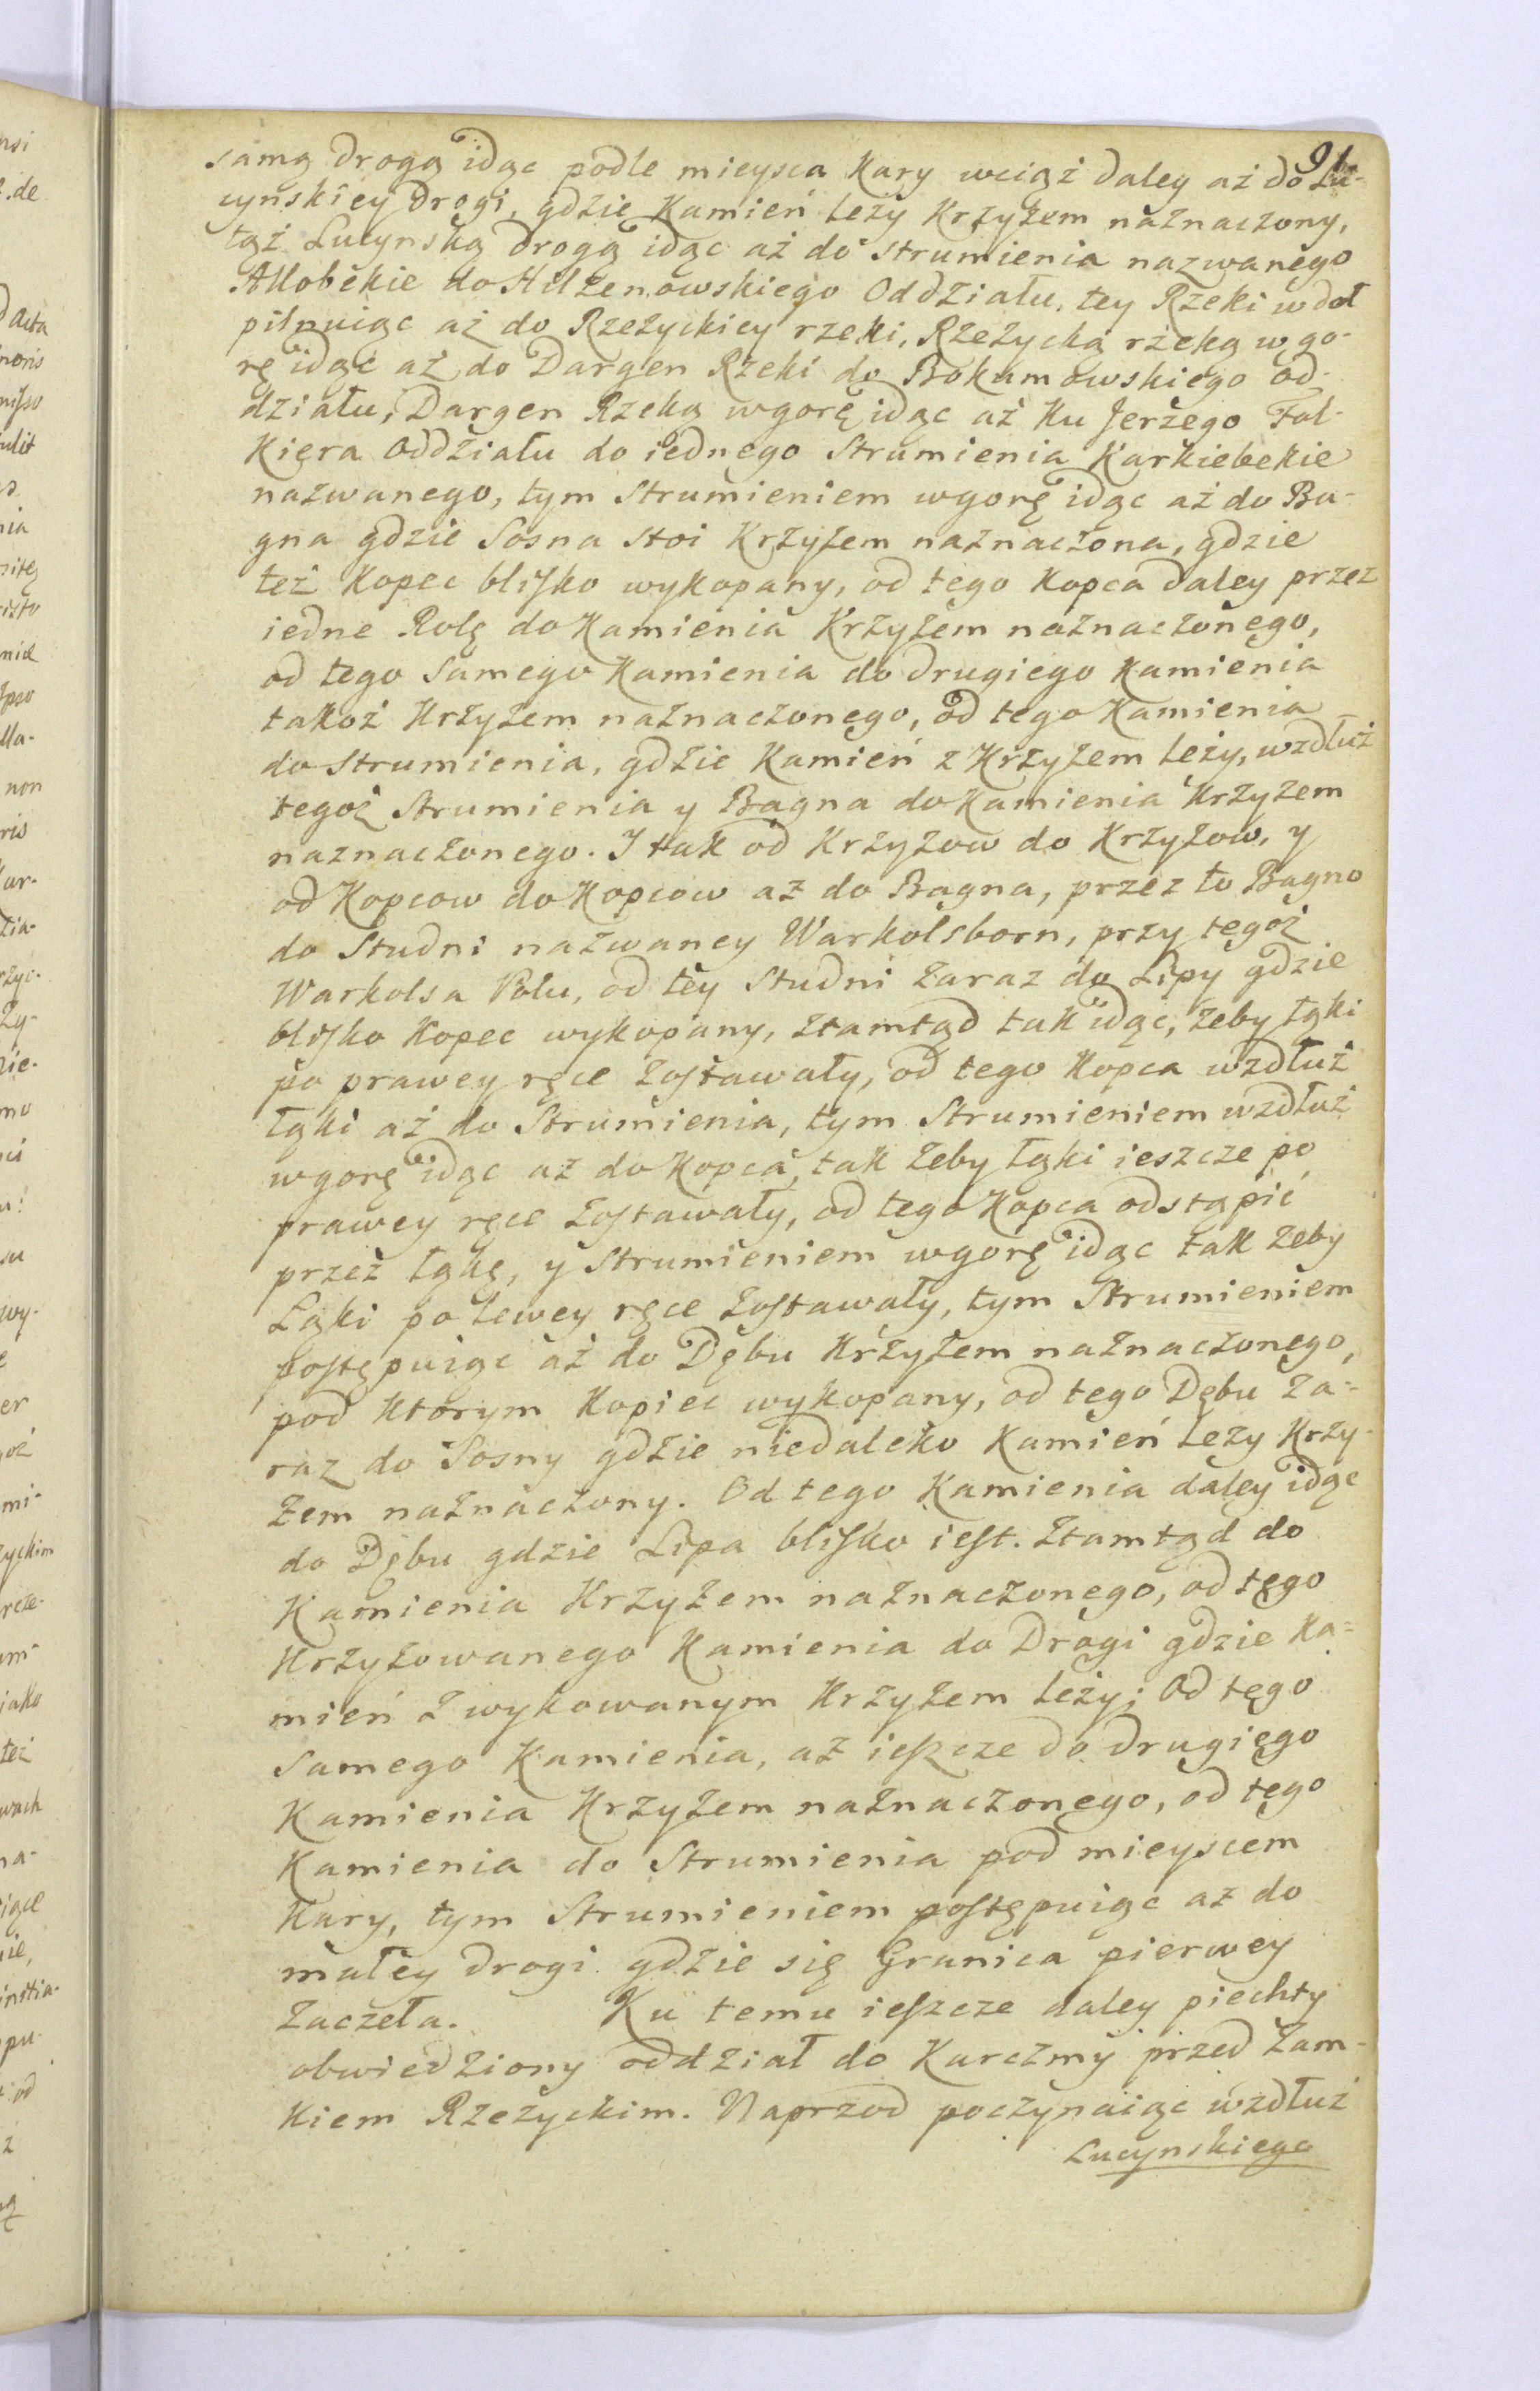 91
samą drogą idąc podle mieysca Kary wciąż daley aż do Lu-
cynskiey drogi, gdzie Kamień leży Krzyżem naznaczony,
tąż Lucynską drogą idąc aż do strumienia nazwanego
Allobekie do Hilzenowskiego Oddziału, tey Rzeki w doł
pilnuiąc aż do Rzeżyckiey rzeki, Rzeżycką rzeką w go-
rę idąc aż do Dargen Rzeki do Bokumowskiego od-
działu, Dargen Rzeką wgorę idąc aż Ku Jerzego Fol-
Kiera Oddziału do iednego Strumienia Karkiebekie
nazwanego, tym Strumieniem wgorę idąc aż do Ba-
gna gdzie Sosna stoi Krzyżem naznaczona, gdzie
też Kopec blisko wykopany, od tego Kopca daley przez
iedne Rolę do Kamienia Krzyżem naznaczonego,
od tego samego Kamienia do drugiego Kamienia
takoż Krzyżem naznaczonego, od tego Kamienia
do Strumienia, gdzie Kamień z Krzyżem leży, wzdłuż
tegoż Strumienia y Bagna do Kamienia Krzyżem
naznaczonego. I tak od Krzyżow do Krzyżow, y
od Kopcow do Kopcow aż do Bagna, przez to Bagno
do Studni nazwaney Warkolsborn, przy tegoż
Warkolsa Polu, od tey Studni zaraz do Lipy gdzie
blisko Kopec wykopany, ztamtąd tak idąc, żeby łąki
po prawey ręce zostawały, od tego Kopca wzdłuż
łąki aż do Strumienia, tym Strumieniem wzdłuż
wgorę idąc aż do Kopca, tak żeby łąki ieszcze po
prawey ręce zostawały, od tego Kopca odstąpić
przez łąkę, y Strumieniem wgorę idąc tak żeby
Łąki po lewey ręce zostawały, tym Strumieniem
postępuiąc aż do Dębu Krzyżem naznaczonego,
pod Ktorym Kopiec wykopany, od tego Dębu za-
raz do Sosny gdzie niedaleko Kamień leży Krzy-
żem naznaczony. Od tego Kamienia daley idąc
do Dębu gdzie Lipa blisko iest. Ztamtąd do
Kamienia Krzyżem naznaczonego, od tego
Krzyżowanego Kamienia do Drogi gdzie Ka-
mień z wykowanym Krzyżem leży; Od tego
samego Kamienia, aż ieszcze do drugiego
Kamienia Krzyżem naznaczonego, od tego
Kamienia do Strumienia pod mieyscem
Kary, tym Strumieniem postępuiąc aż do
małey drogi gdzie się Granica pierwey
zaczeła. Ku temu ieszcze daley piechty
obwiedziony oddział do Karczmy przed Zam-
Kiem Rzeżyckim. Naprzod poczynaiąc wzdłuż
Lucynskiego